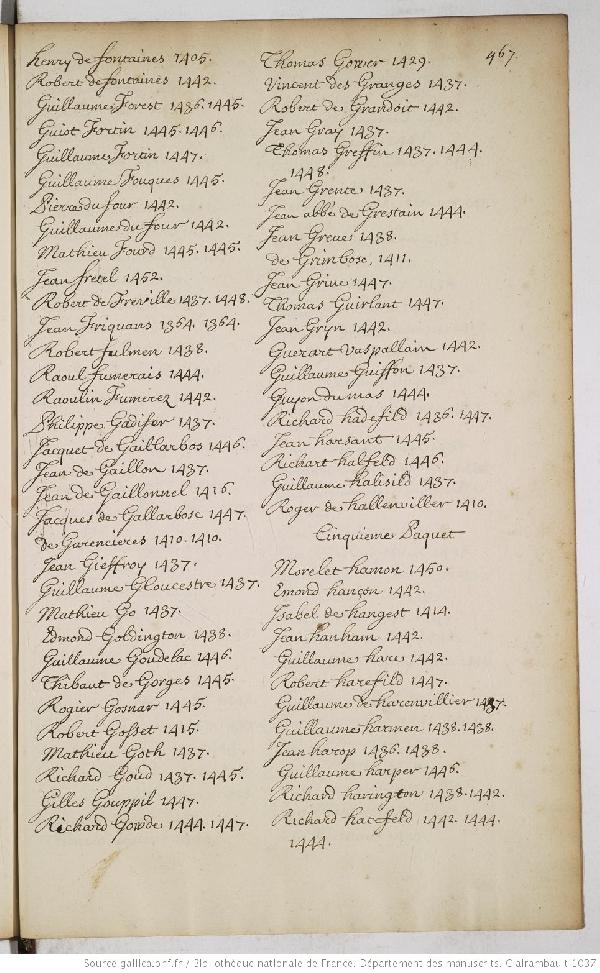 467.
henry de fontaines 1405.
Robert de fontaines 1442.
Guillaume Forest 1436. 1445.
Guiot Fortin 1445. 1446.
Guillaume Fortin 1447.
Guillaume Fouques 1445.
Pierre du four 1442.
Guillaume du four 1442.
Mathieu Fowd 1445. 1445.
Jean fretel 1452.
Robert de Freville 1437. 1448.
Jean Friquans 1364. 1364.
Robert fulmen 1438.
Raoul fumerais 1444.
Raoulin Fumerez 1442.
Philippe Gadifer 1437.
Jacquet de Gaillarbos 1446.
Jean de Gaillon 1437.
Jean de Gaillonnel 1416.
Jacques de Gallarbosc 1447.
de Garencieres 1410. 1410.
Jean Gieffroy 1437.
Guillaume Gloucestre 1437.
Mathieu Go 1437.
Edmond Goldington 1438.
Guillaume Goudelac 1446.
Thibaut de Gorges 1445.
Rogier Gosnar 1445.
Robert Gosset 1415.
Mathieu Goth 1437.
Richard Goud 1437. 1445.
Gilles Gouppil 1447.
Richard Gowde 1444. 1447.
Thomas Gower 1429.
Vincent des Granges 1437.
Robert de Grandoit 1442.
Jean Gray 1437.
Thomas Greffin 1437. 1444.
1448.
Jean Grente 1437.
Jean abbé de Grestain 1444.
Jean Greues 1438.
de Grimbosc, 1411.
Jean Grine 1447.
Thomas Guirlant 1447.
Jean Gryn 1442.
Guerart Vaspallain 1442.
Guillaume Guiffon 1437.
Guyon du mas 1444.
Richard hadefild 1436. 1447.
Jean harsant 1445.
Richart halfeld 1446.
Guillaume halisild 1437.
Roger de hallenviller 1410.
Cinquieme Paquet
Morelet hamon 1450.
Emond hançon 1442.
Isabel de hangest 1414.
Jean hanham 1442.
Guillaume hare 1442.
Robert harefild 1447.
Guillaume de harenvillier 1437.
Guillaume harmen 1438. 1438.
Jean harop 1436. 1438.
Guillaume harper 1446.
Richard harington 1438. 1442.
Richard hacefeld 1442. 1444.
1444.
Source gallica.bnf.fr / Bibliothèque nationale de France. Département des manuscrits. Clairambault 1037